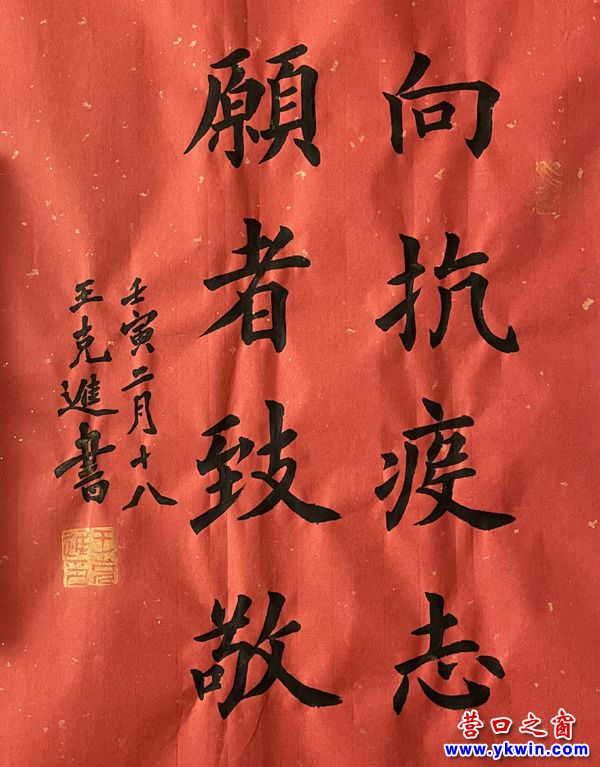 向抗疫志
願者致敬
壬寅二月十八
王克進書
营口之窗
www.ykwin.com